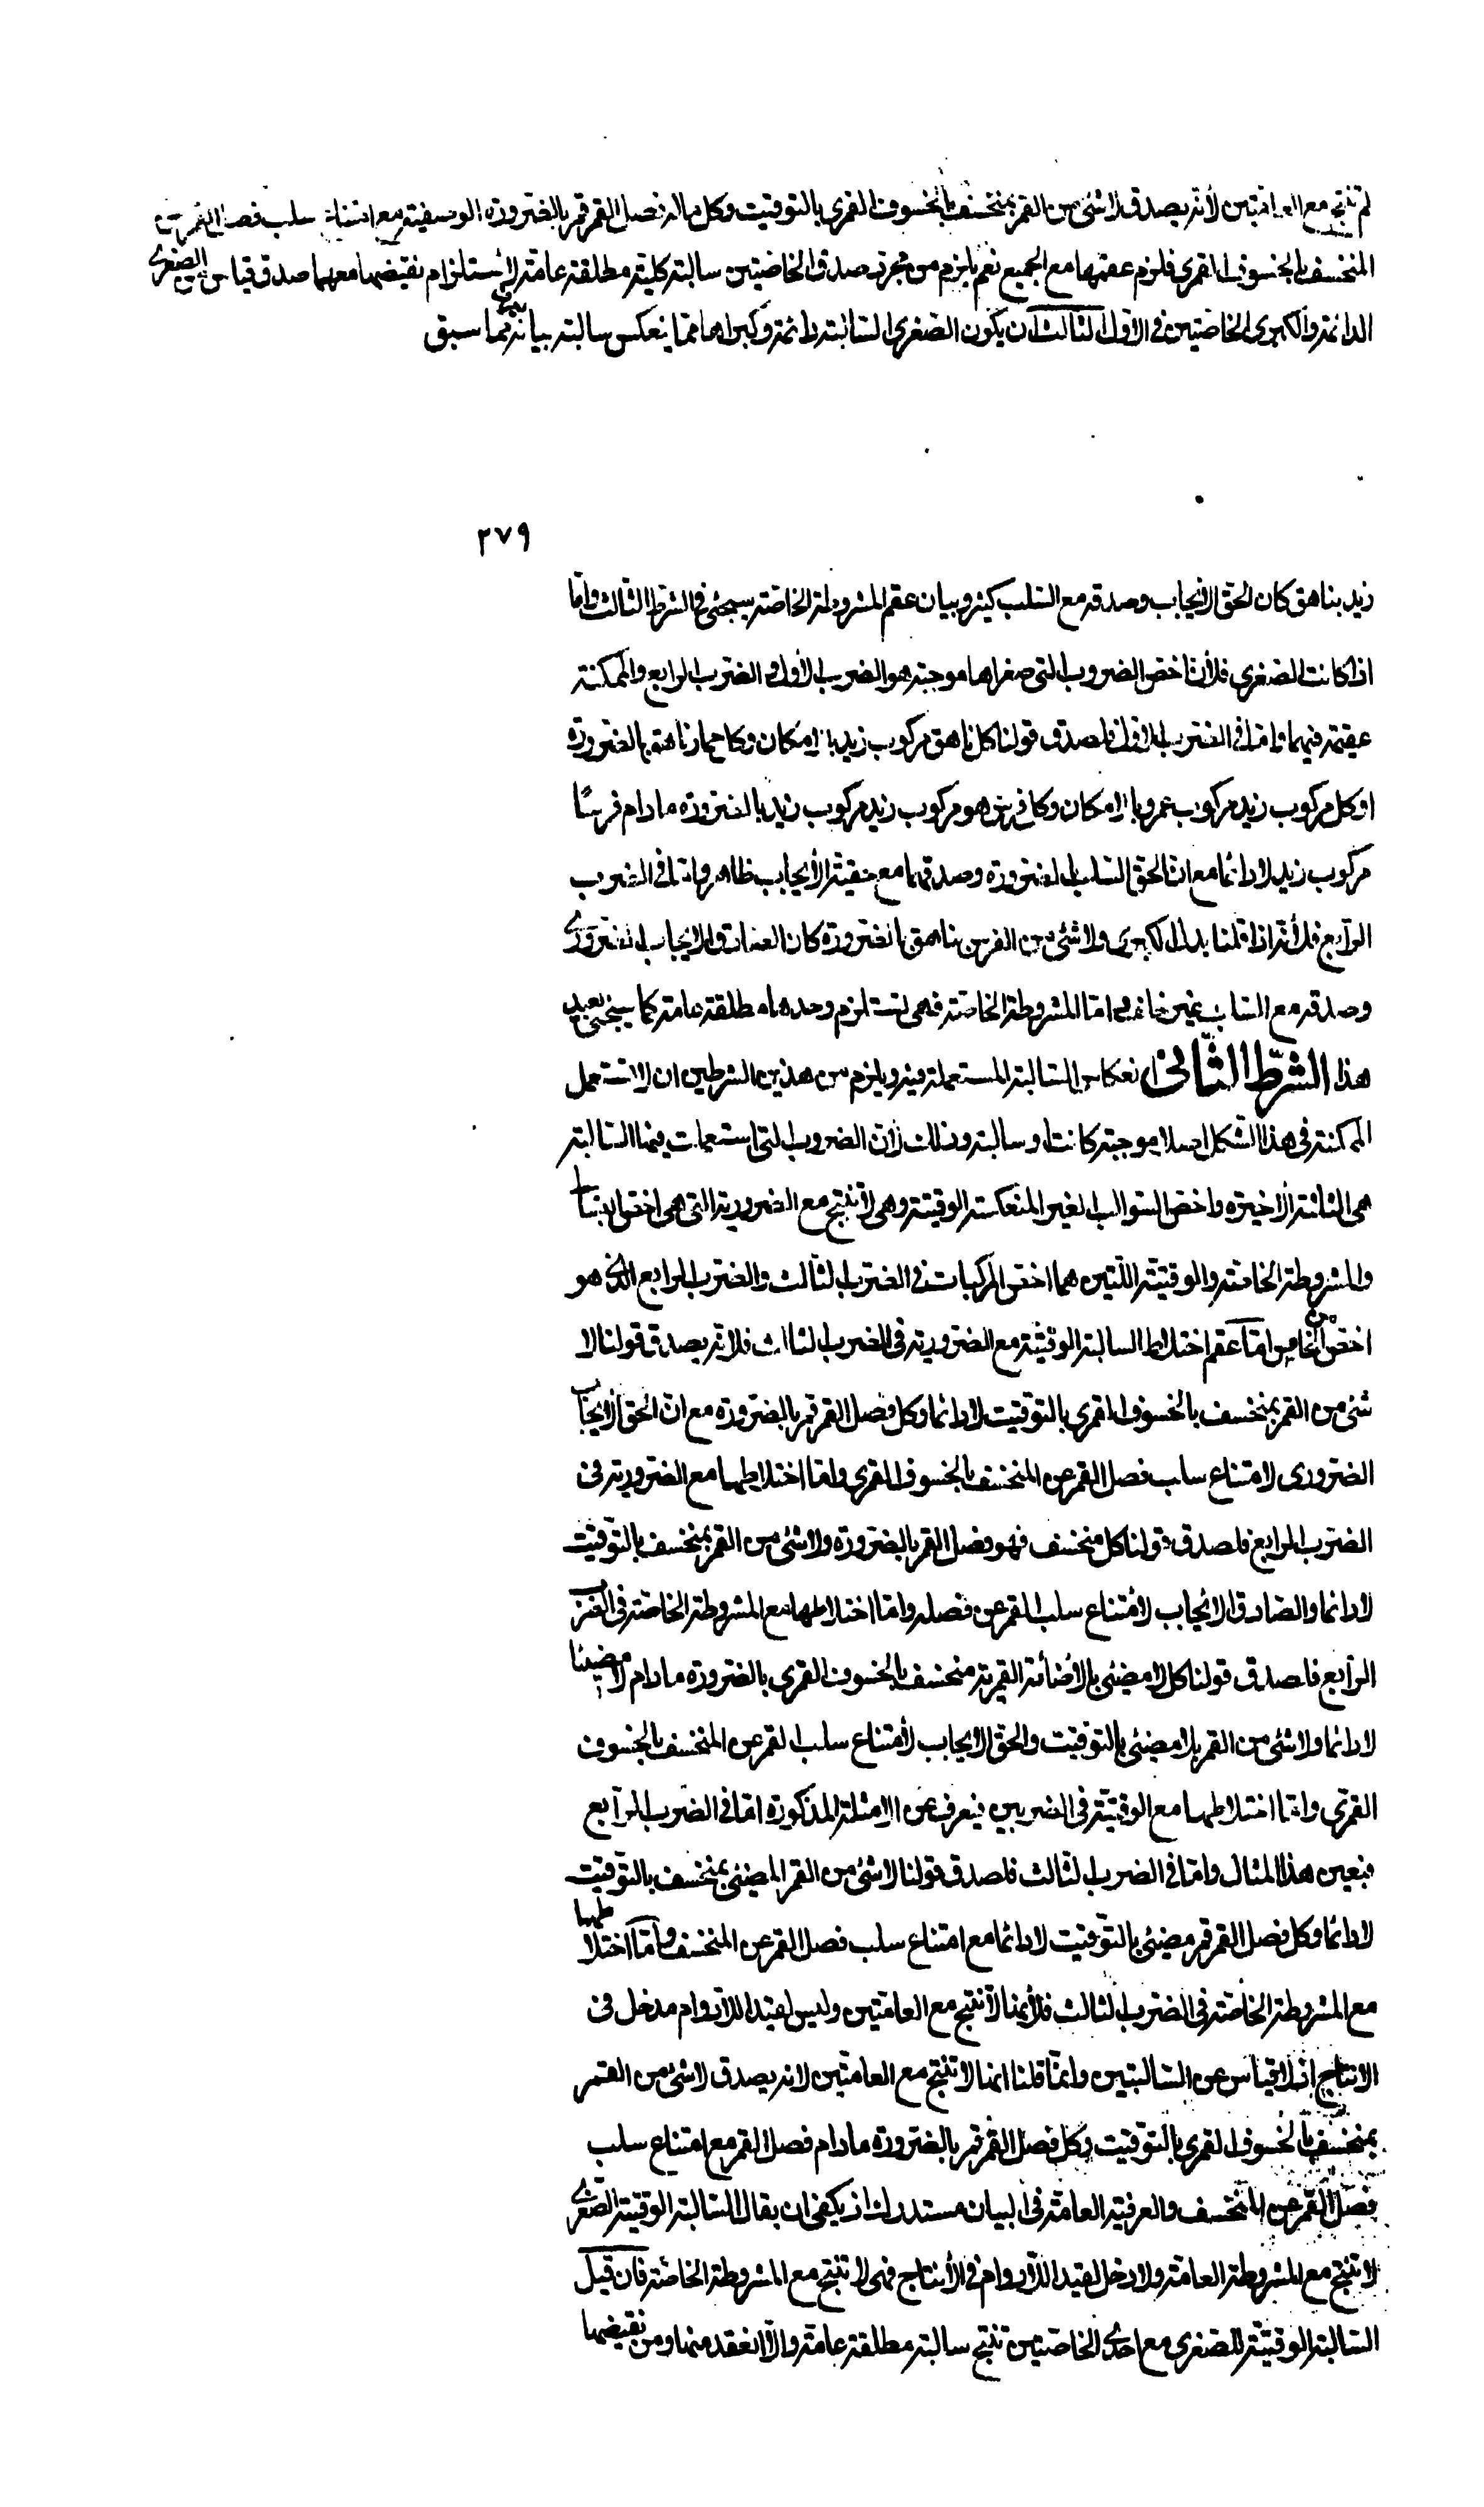 لم تنتج مع العامتين لأنه يصدق لا شئ من القمر بمنخسف بالخسوف القمري بالتوقيت وكل ما له فصل القمر قمر بالضرورة الوصفية مع امتناع سلب فصل القمر عن
المنخسف بالخسوف القمري فلزم عقمها مع الجميع نعم يلزم من مجرد صدق الخاصيتين سالبة كلية مطلقة عامة لاستلزام نقيضها معهما صدق قياس الصغرى
الدائمة والكبرى الخاصيتين في الأول الثالث ان يكون الصغرى السالبة دائمة وكبراها مما ينعكس سالبة بيانه مما سبق
٢٧٩
زيد بناهق كان الحق الايجاب وصدقه مع السلب كثير وبيان عقم المشروطة الخاصة سيجئ في الشرط الثالث واما
اذا كانت الصغرى فلأن اخص الضروب التى صغراها موجبة هو الضرب الأول والضرب الرابع والممكنة
عقيمة فيهما واما في الضرب الاول فلصدق قولنا كل ناهق مركوب زيد بالامكان وكل حمار ناهق بالضرورة
او كل مركوب زيد مركوب عمرو بالامكان وكل فرس هو مركوب زيد مركوب زيد بالضرورة مادام فرسًا
مركوب زيد لا دائما مع ان الحق السلب بالضرورة وصدقهما مع حقية الأيجاب ظاهر واما في الضرب
الرابع فلأنه اذا قلنا بدل الكبرى ولا شئ من الفرس بناهق بالضرورة كان الصادق الايجاب الضرورى
وصدقه مع السلب غير خاف واما المشروطة الخاصة فهى تستلزم وحدها مطلقة عامة كما سيجئ بعيد
هذا الشرط الثانى انعكاس السالبة المستعملة فيه ويلزم من هذين الشرطين ان لا تستعمل
الممكنة في هذا الشكل اصلا موجبة كانت او سالبة وذلك لان الضروب التى استعملت فيها السالبة
هى الثلثة الأخيرة واخص السوالب الغير المنعكسة الوقتية وهى لا تنتج مع الضرورية التى هى اخص البسائط
والمشروطة الخاصة والوقتية اللتين هما اخص المركبات في الضرب الثالث والضرب الرابع الذى هو
اخص من الخامس اما عقم اختلاط السالبة الوقتية مع الضرورية في الضرب الثالث فلانه يصدق قولنا لا
شئ من القمر بمنخسف بالخسوف القمرى بالتوقيت لا دائما وكل فصل القمر قمر بالضرورة مع ان الحق الايجاب
الضرورى لامتناع سلب فصل القمر عن المنخسف بالخسوف القمرى واما اختلاطها مع الضرورية فى
الضرب الرابع فلصدق قولنا كل منخسف فهو فصل القمر بالضرورة ولا شئ من القمر بمنخسف بالتوقيت
لا دائما والصادق الايجاب لأمتناع سلب القمر عن فصله واما اختلاطها مع المشروطة الخاصة في الضرب
الرابع فلصدق قولنا كل لا مضيئ بالاضائة القمرية منخسف بالخسوف القمرى بالضرورة ما دام لا مضيئا
لا دائما ولا شئ من القمر بلا مضيئ بالتوقيت والحق الايجاب لأمتناع سلب القمر عن المنخسف بالخسوف
القمرى واما اختلاطها مع الوقتية في الضربين فيعرف من الامثلة المذكورة اما في الضرب الرابع
فبعين هذا المثال واما في الضرب الثالث فلصدق قولنا لا شئ من القمر المضيئ بمنخسف بالتوقيت
لا دائما وكل فصل القمر قمر مضيئ بالتوقيت لا دائما مع امتناع سلب فصل القمر عن المنخسف واما اختلاطها
مع المشروطة الخاصة في الضرب الثالث فلأنها لا تنتج مع العامتين وليس لقيد اللادوام مدخل فى
الانتاج اذ لا قياس عن السالبتين وانما قلنا انها لا تنتج مع العامتين لانه يصدق لا شئ من القمر
بمنخسف بالخسوف القمرى بالتوقيت وكل فصل القمر قمر بالضرورة مادام فصل القمر مع امتناع سلب
فصل القمر عن المنخسف والعرفية العامة في البيان مستدرك اذ يكفى ان يقال السالبة الوقتية الصغرى
لا تنتج مع المشروطة العامة ولا دخل لقيد اللادوام في الأنتاج فهى لا تنتج مع المشروطة الخاصة فان قيل
السالبة الوقتية الصغرى مع احدى الخاصتين تنتج سالبة مطلقة عامة والا انعقد منها ومن نقيضها